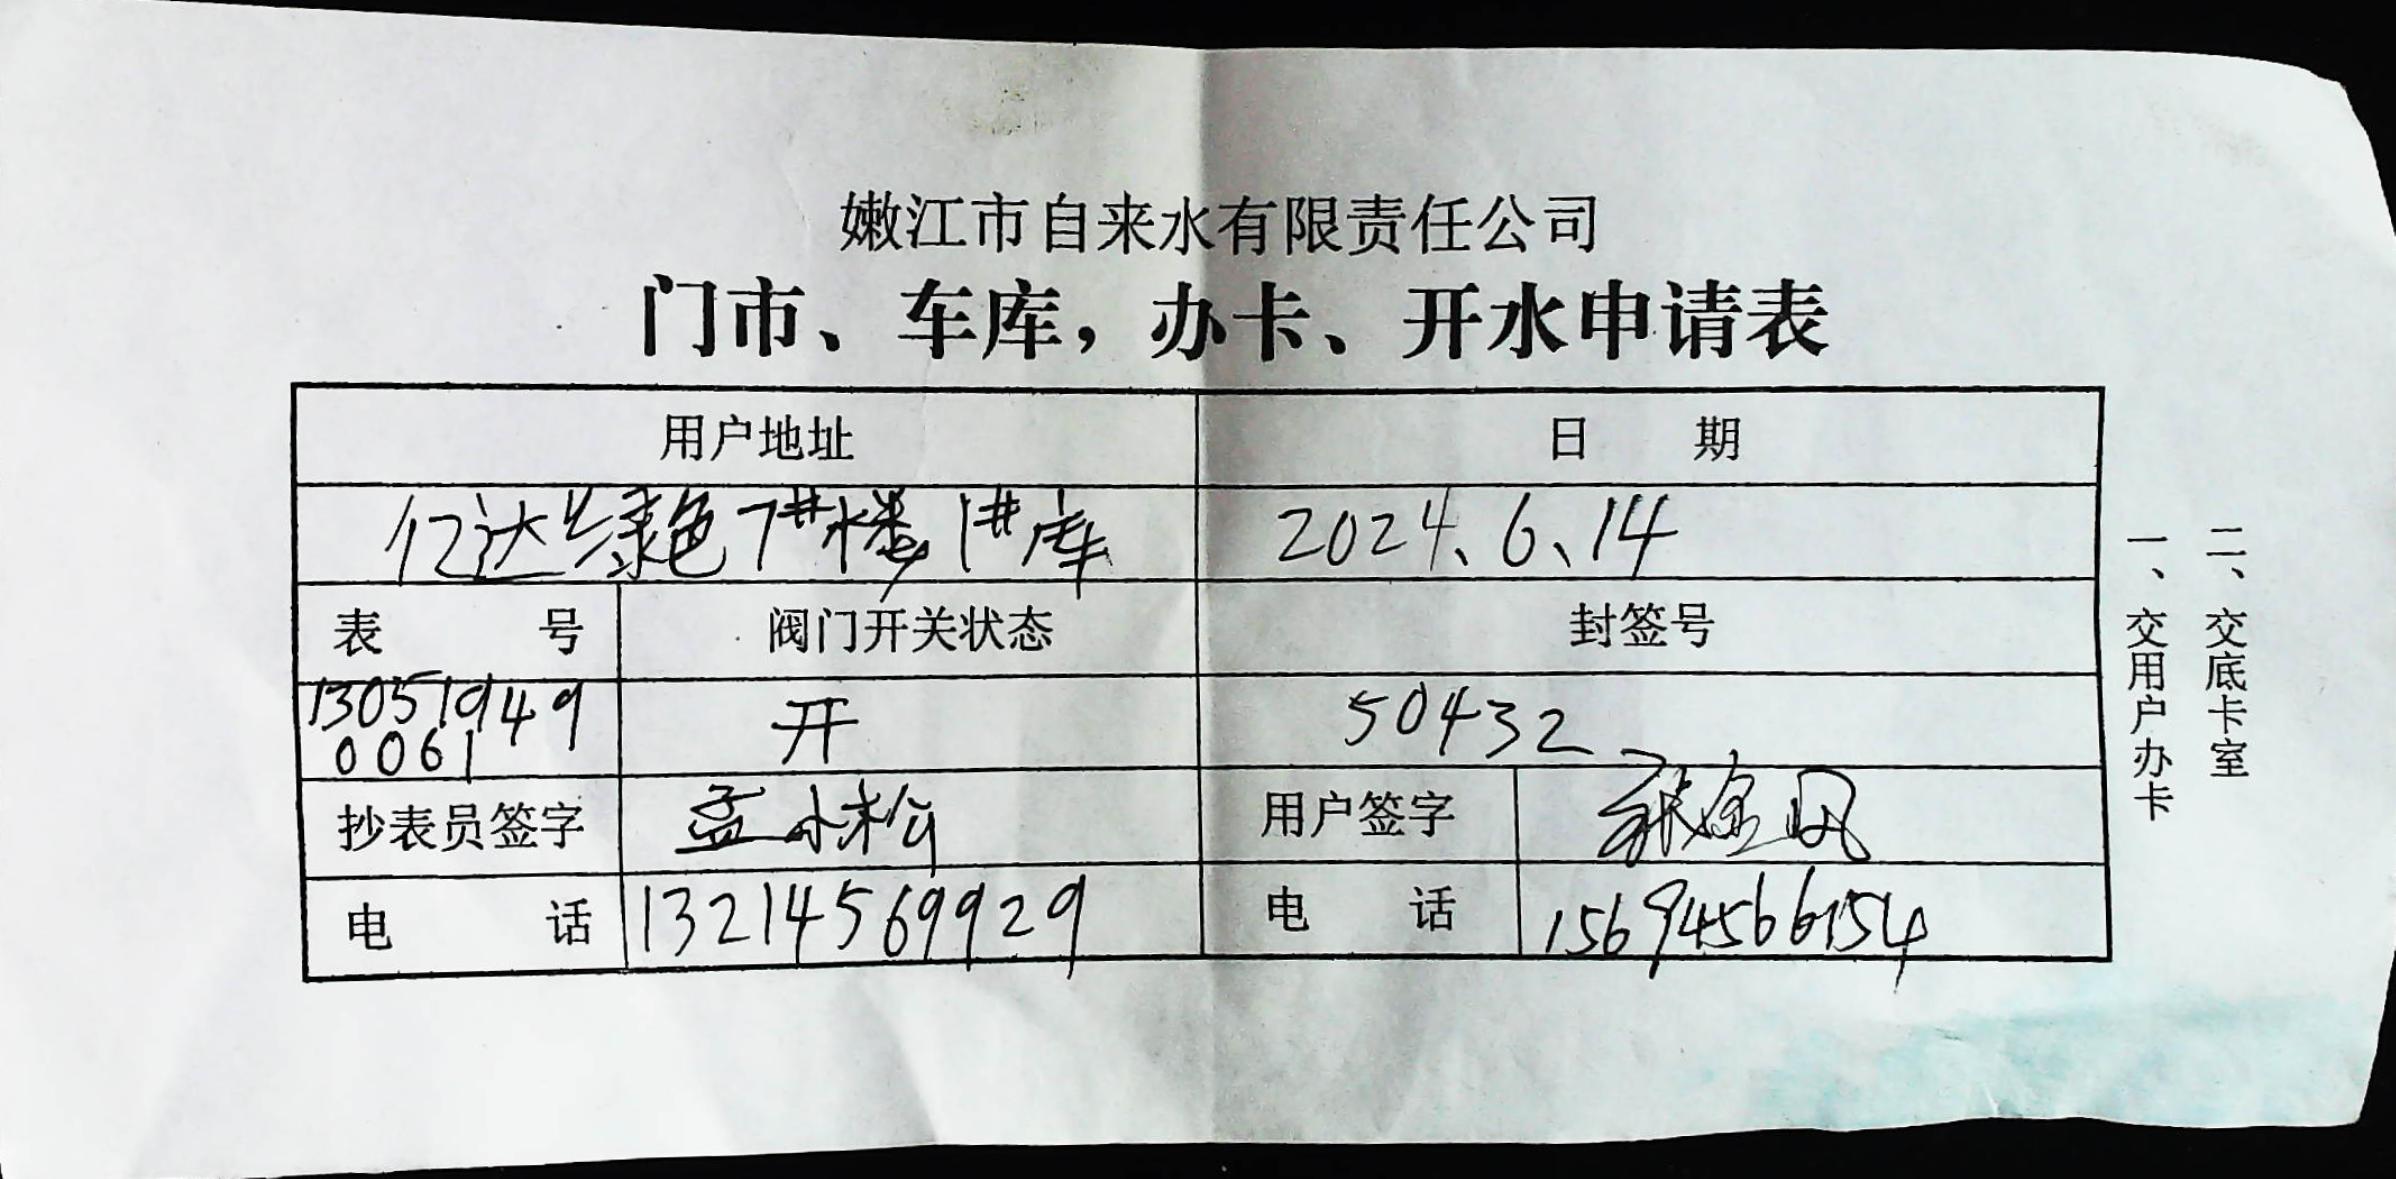 嫩江市自来水有限责任公司
门市、车库，办卡、开水申请表
用户地址 日 期
亿达绿色7#楼1#库 2024、6、14
表 号 阀门开关状态 封签号
13051949 开 50432
0061
抄表员签字 孟小松 用户签字 张金凤
电 话 13214569929 电 话 15694566154
一、交用户办卡
二、交底卡室